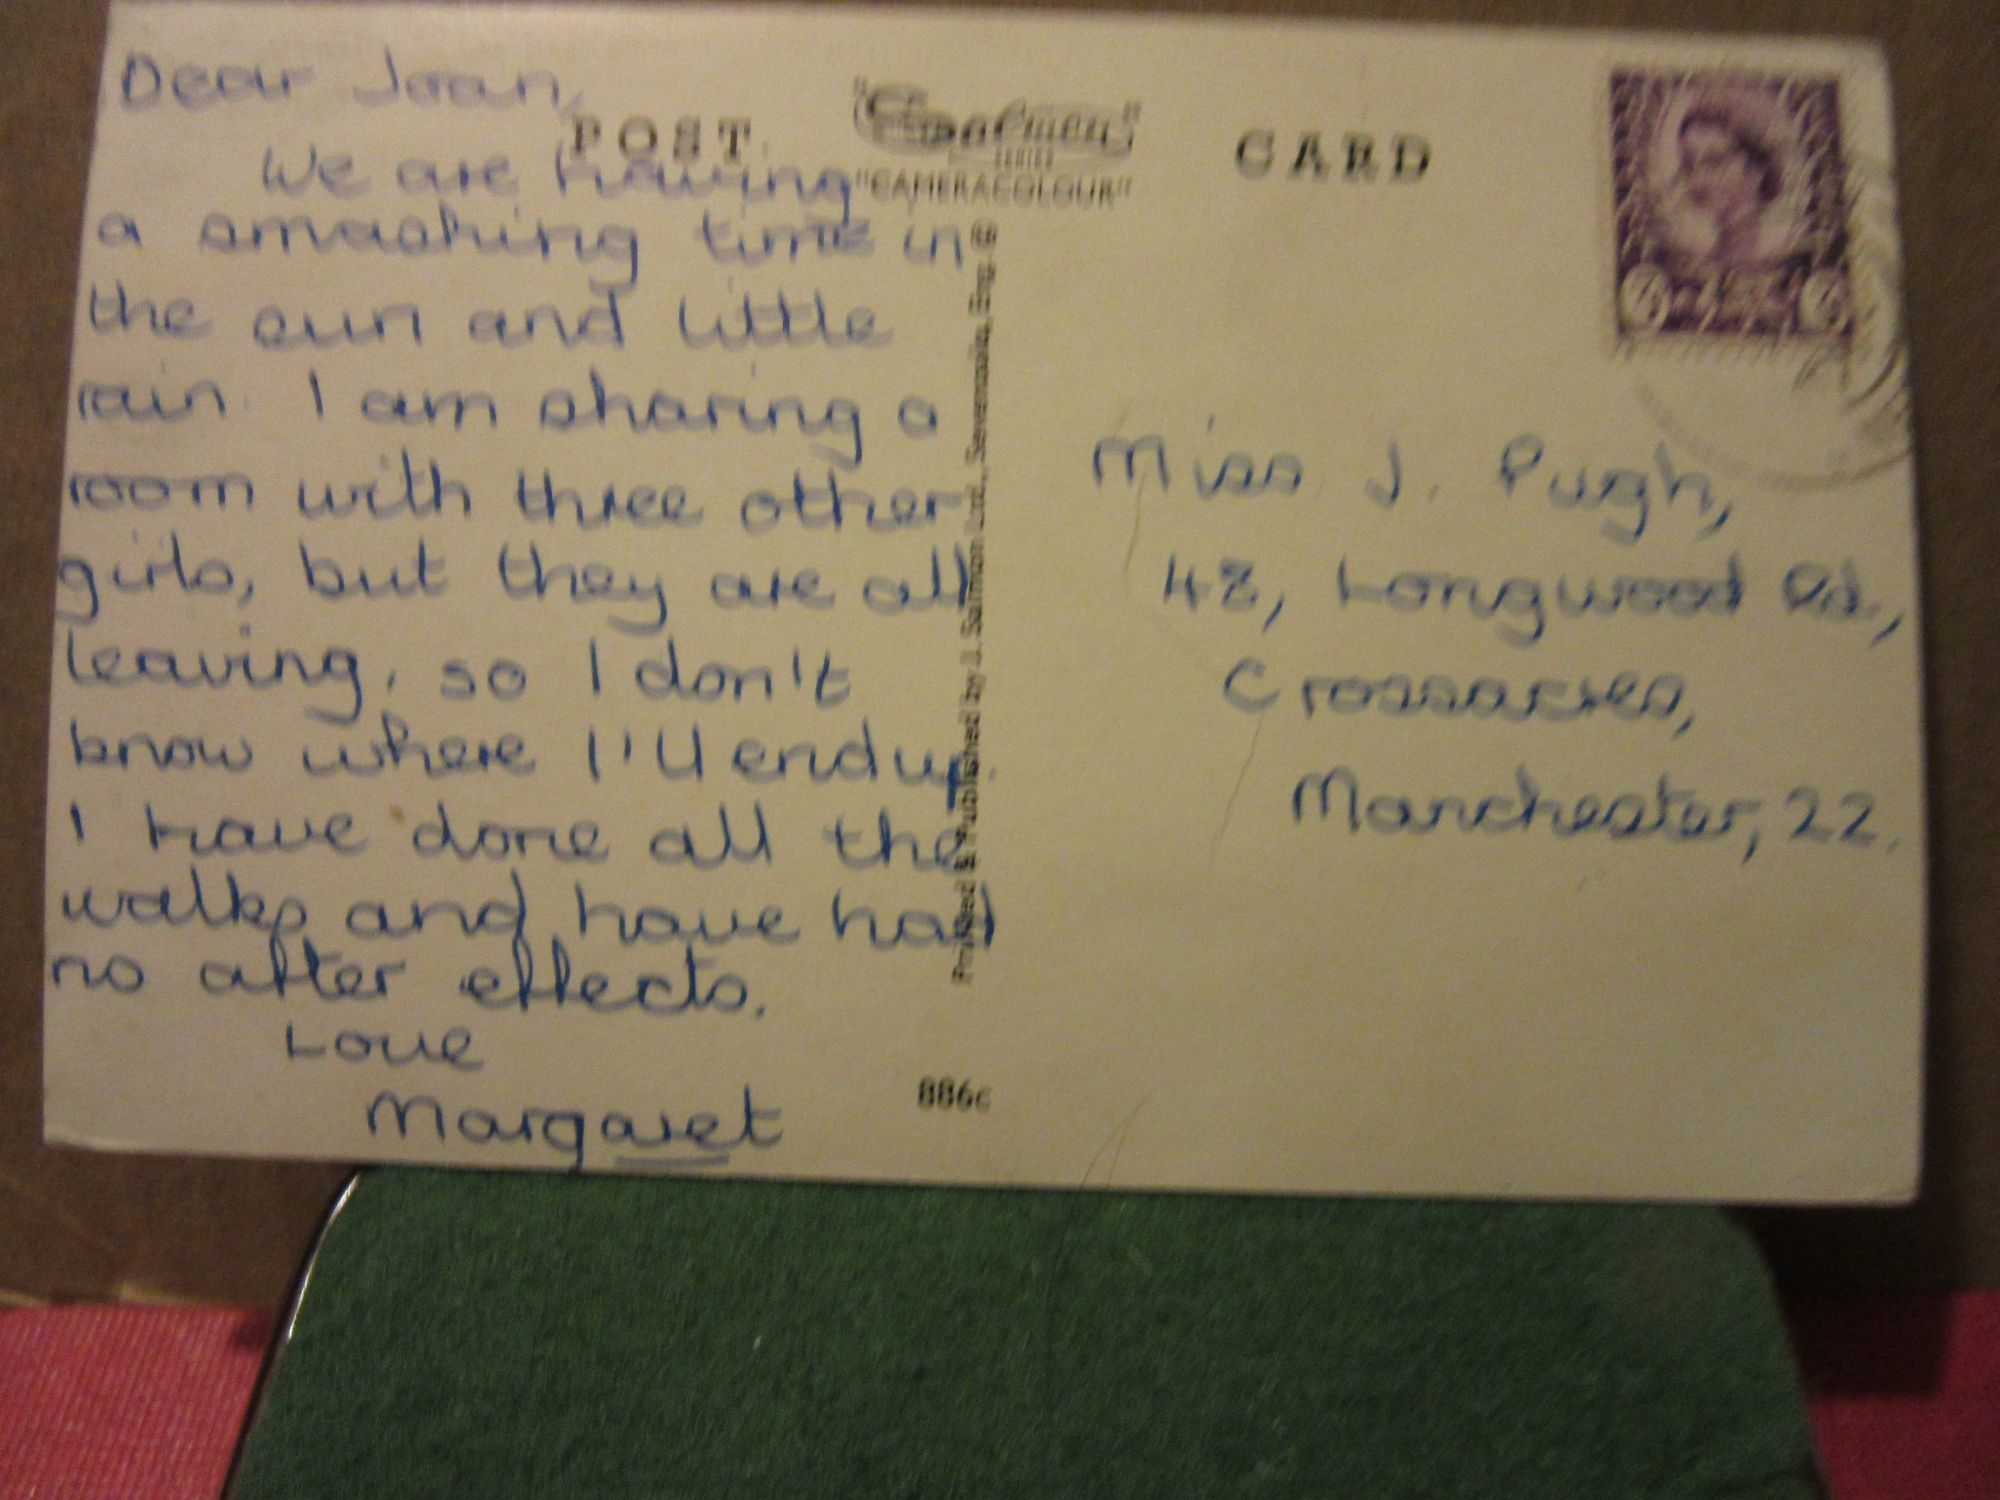 Dear Joan,
We are having
a smashing time in
the sun and little
rain. I am sharing a
room with three other
girls, but they are all
leaving, so I don't
know where I'll end up.
I have done all the
walks and have had
no after effects.
Love
Margaret
POST CARD
"Salmon"
SERIES
"CAMERACOLOUR"
Printed & Published by J. Salmon Ltd., Sevenoaks, Eng. ©
886c
Miss J. Pugh,
48, Longwood Rd,
Crossacres,
Manchester, 22.